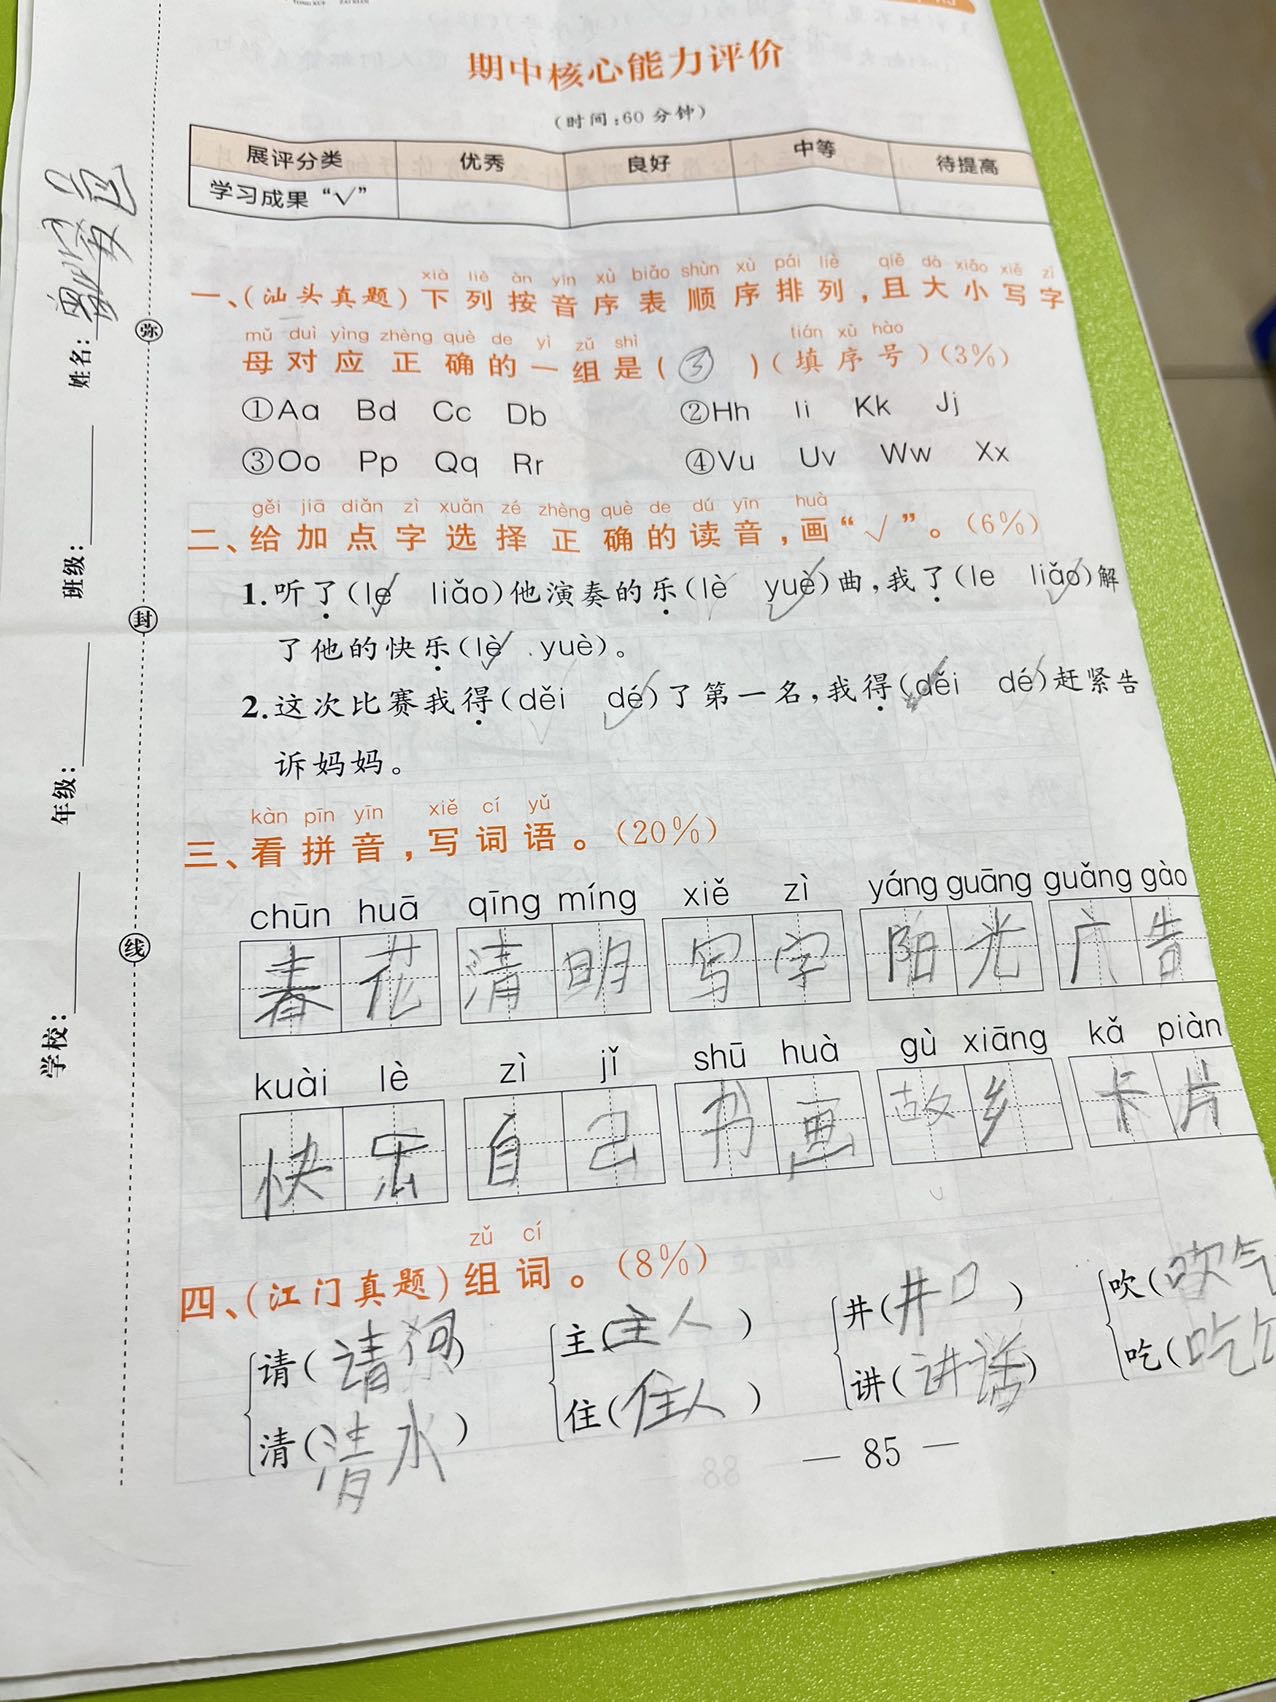 期中核心能力评价
(时间:60分钟)
展评分类 优秀 良好 中等 待提高
学习成果“√”
xià liè àn yīn xù biǎo shùn xù pái liè qiě dà xiǎo xiě zì
一、(汕头真题)下列按音序表顺序排列,且大小写字
mǔ duì yìng zhèng què de yì zǔ shì tián xù hào
母对应正确的一组是( ③ )(填序号)(3%)
①Aa Bd Cc Db ②Hh Ii Kk Jj
③Oo Pp Qq Rr ④Vu Uv Ww Xx
gěi jiā diǎn zì xuǎn zé zhèng què de dú yīn huà
二、给加点字选择正确的读音,画“√”。(6%)
1.听了(le✓ liǎo)他演奏的乐(lè yuè✓)曲,我了(le liǎo✓)解
了他的快乐(lè✓ yuè)。
2.这次比赛我得(děi dé✓)了第一名,我得(děi dé✓)赶紧告
诉妈妈。
kàn pīn yīn xiě cí yǔ
三、看拼音,写词语。(20%)
chūn huā qīng míng xiě zì yáng guāng guǎng gào
春花 清明 写字 阳光 广告
kuài lè zì jǐ shū huà gù xiāng kǎ piàn
快乐 自己 书画 故乡 卡片
zǔ cí
四、(江门真题)组词。(8%)
请(请 ) 主(主人) 井(井口) 吹(吹气
清(清水) 住(住人) 讲(讲话) 吃(吃
— 85 —
姓名:
班级:
年级:
学校:
弥
封
线